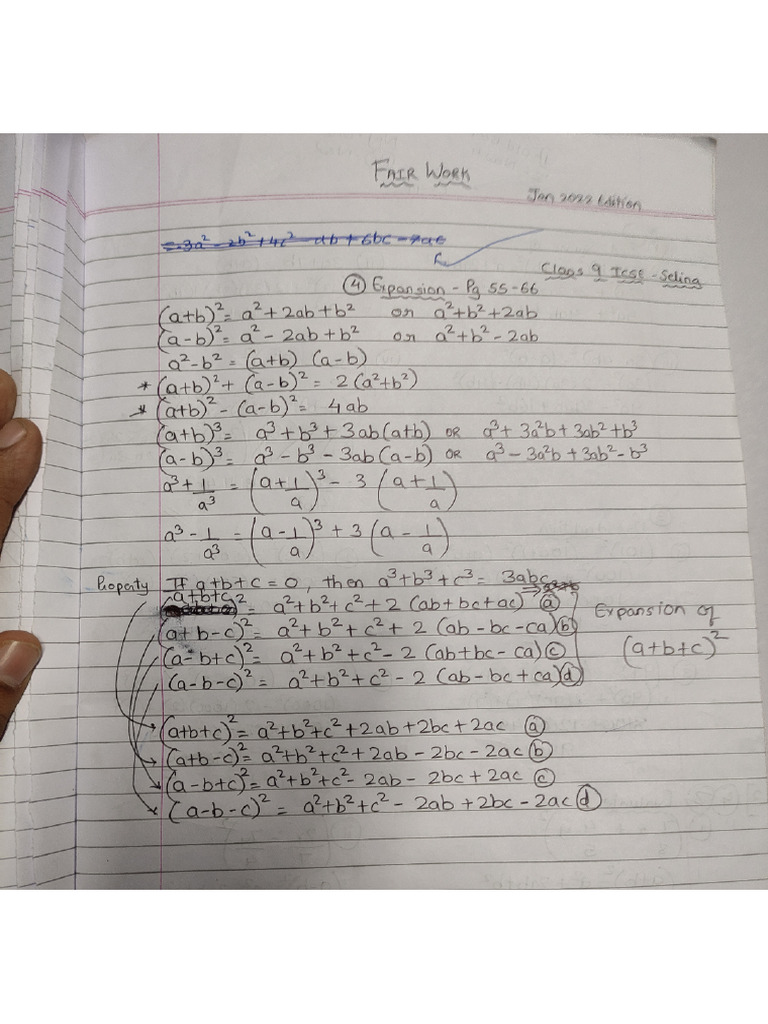 FAIR WORK
Jan 2022 Edition
= -3a² - 2b² + 4c² - ab + 6bc - 7ac
Class 9 ICSE - Selina
④ Expansion - Pg 55-66
(a+b)² = a² + 2ab + b² or a² + b² + 2ab
(a-b)² = a² - 2ab + b² or a² + b² - 2ab
a² - b² = (a+b) (a-b)
* (a+b)² + (a-b)² = 2(a²+b²)
* (a+b)² - (a-b)² = 4ab
(a+b)³ = a³ + b³ + 3ab(a+b) OR a³ + 3a²b + 3ab² + b³
(a-b)³ = a³ - b³ - 3ab(a-b) OR a³ - 3a²b + 3ab² - b³
a³ + 1/a³ = (a + 1/a)³ - 3 (a + 1/a)
a³ - 1/a³ = (a - 1/a)³ + 3 (a - 1/a)
Property If a+b+c = 0, then a³+b³+c³ = 3abc
(a+b+c)² = a²+b²+c² + 2 (ab+bc+ac) ⓐ
(a+b-c)² = a²+b²+c² + 2 (ab-bc-ca) ⓑ
(a-b+c)² = a²+b²+c² - 2 (ab+bc-ca) ⓒ
(a-b-c)² = a²+b²+c² - 2 (ab-bc+ca) ⓓ
Expansion of
(a+b+c)²
(a+b+c)² = a²+b²+c² + 2ab + 2bc + 2ac ⓐ
(a+b-c)² = a²+b²+c² + 2ab - 2bc - 2ac ⓑ
(a-b+c)² = a²+b²+c² - 2ab - 2bc + 2ac ⓒ
(a-b-c)² = a²+b²+c² - 2ab + 2bc - 2ac ⓓ